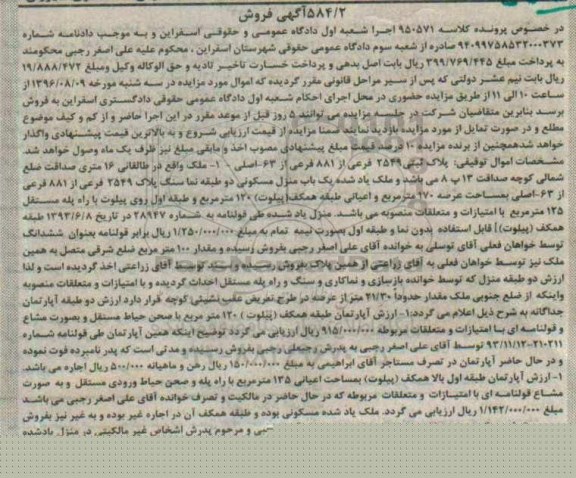 ۵۸۴/۲آگهی فروش
در خصوص پرونده کلاسه ۹۵۰۵۷۱ اجرا شعبه اول دادگاه عمومی و حقوقی اسفراین و به موجب دادنامه شماره
۹۴۰۹۹۷۵۸۵۳۲۰۰۰۳۷۳ صادره از شعبه سوم دادگاه عمومی حقوقی شهرستان اسفراین ، محکوم علیه علی اصغر رجبی محکومند
به پرداخت مبلغ ۳۹۹/۷۶۹/۴۴۵ ریال بابت اصل بدهی و پرداخت خسارت تاخیر تادیه و حق الوکاله وکیل ومبلغ ۱۹/۸۸۸/۴۷۲
ریال بابت نیم عشر دولتی که پس از سیر مراحل قانونی مقرر گردیده که اموال مورد مزایده در سه شنبه مورخه ۱۳۹۶/۰۸/۰۹ از
ساعت ۱۰ الی ۱۱ از طریق مزایده حضوری در محل اجرای احکام شعبه اول دادگاه عمومی حقوقی دادگستری اسفراین به فروش
برسد بنابرین متقاضیان شرکت در جلسه مزایده می توانند ۵ روز قبل از موعد مقرر در این اجرا حاضر و از کم و کیف موضوع
مطلع و در صورت تمایل از مورد مزایده بازدید نمایند ضمنا مزایده از قیمت ارزیابی شروع و به بالاترین قیمت پیشنهادی واگذار
خواهد شدهمچنین از برنده مزایده ۱۰ درصد قیمت مبلغ پیشنهادی مصوب اخذ و مابقی مبلغ نیز ظرف یک ماه وصول خواهد شد.
مشخصات اموال توقیفی: پلاک ثبتی ۲۵۴۹ فرعی از ۸۸۱ فرعی از ۶۳-اصلی . ۱- ملک واقع در طالقانی ۱۶ متری صداقت ضلع
شمالی کوچه صداقت ۱۳ پ ۸ می باشد و ملک یاد شده یک باب منزل مسکونی دو طبقه نما سنگ پلاک ۲۵۴۹ فرعی از ۸۸۱ فرعی
از ۶۳-اصلی بمساحت عرصه ۲۷۰ مترمربع و اعیانی طبقه همکف(پیلوت) ۱۲۰ مترمربع و طبقه اول روی پیلوت با راه پله مستقل
۱۳۵ مترمربع با امتیازات و متعلقات منصوبه می باشد. منزل یاد شده طی قولنامه به شماره ۲۸۹۴۷ در تاریخ ۱۳۹۳/۶/۸ طبقه
همکف (پیلوت)] قابل استفاده بدون نما و طبقه اول بصورت نیمه تمام به مبلغ ۱/۲۵۰/۰۰۰/۰۰۰ ریال برابر قولنامه بعنوان ششدانگ
توسط خواهان فعلی آقای توسلی به خوانده آقای علی اصغر رجبی بفروش رسیده و مقدار ۱۰۰ متر مربع ضلع شرقی متصل به همین
ملک نیز توسط خواهان فعلی به آقای زراعتی از همین پلاک بفروش رسیده و سند توسط آقای زراعتی اخذ گردیده است و لذا
ارزش دو طبقه منزل که توسط خوانده بازسازی و نماکاری و سنگ و راه پله مستقل احداث گردیده و با امتیازات و متعلقات منصوبه
واینکه از ضلع جنوبی ملک مقدار حدوداً ۴۱/۳۰ متر از عرصه در طرح تعریض عقب نشینی کوچه قرار دارد ارزش دو طبقه آپارتمان
جداگانه به شرح ذیل اعلام می گردد:۱- ارزش آپارتمان طبقه همکف (پیلوت ) ۱۲۰ متر مربع با صحن حیاط مستقل و بصورت مشاع
و قولنامه ای با امتیازات و متعلقات مربوطه ۹۱۵/۰۰۰/۰۰۰ ریال ارزیابی می گردد توضیح اینکه همین آپارتمان طی قولنامه شماره
۲۱۰۲۱۱-۹۳/۱۱/۱۲ توسط آقای علی اصغر رجبی به پدرش رجبعلی رجبی بفروش رسیده و مدتی است که پدر نامبرده فوت نموده
و در حال حاضر آپارتمان در تصرف مستاجر آقای ابراهیمی به مبلغ ۱۵۰/۰۰۰/۰۰۰ ریال رهن و ماهیانه ۵۰۰/۰۰۰ ریال اجاره می باشد.
۱- ارزش آپارتمان طبقه اول بالا همکف (پیلوت) بمساحت اعیانی ۱۳۵ مترمربع با راه پله و صحن حیاط ورودی مستقل و به صورت
مشاع قولنامه ای با امتیازات و متعلقات مربوطه که در حال حاضر در مالکیت و تصرف خوانده آقای علی اصغر رجبی می باشد
مبلغ ۱/۱۴۲/۰۰۰/۰۰۰ ریال ارزیابی می گردد. ملک یاد شده مسکونی بوده و طبقه همکف آن در اجاره غیر بوده و به غیر نیز بفروش
جبی و مرحوم پدرش اشخاص غیر مالکیتی در منزل یادشده